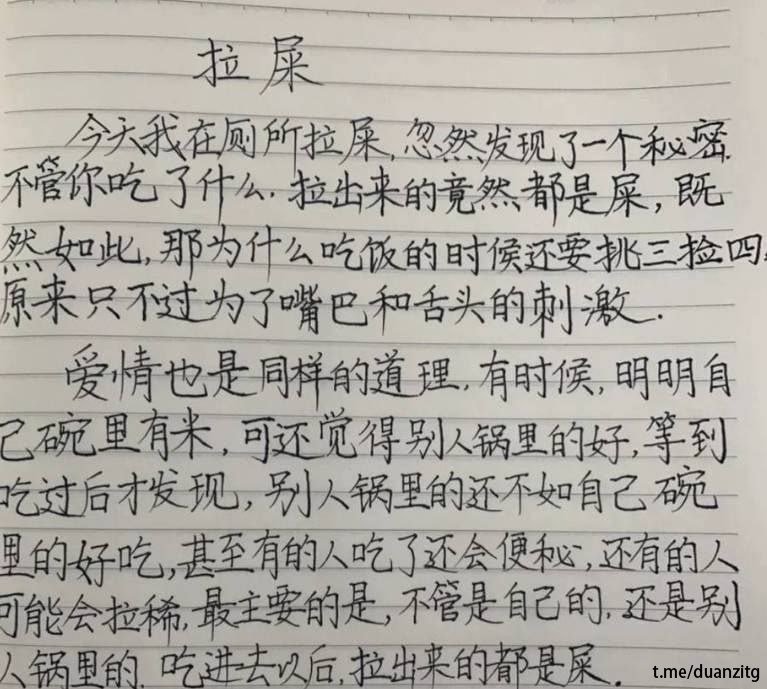 拉屎
今天我在厕所拉屎,忽然发现了一个秘密.
不管你吃了什么.拉出来的竟然都是屎,既
然如此,那为什么吃饭的时候还要挑三捡四,
原来只不过为了嘴巴和舌头的刺激.
爱情也是同样的道理.有时候,明明自
己碗里有米,可还觉得别人锅里的好,等到
吃过后才发现,别人锅里的还不如自己碗
里的好吃,甚至有的人吃了还会便秘,还有的人
可能会拉稀,最主要的是,不管是自己的.还是别
人锅里的.吃进去以后,拉出来的都是屎.
t.me/duanzitg